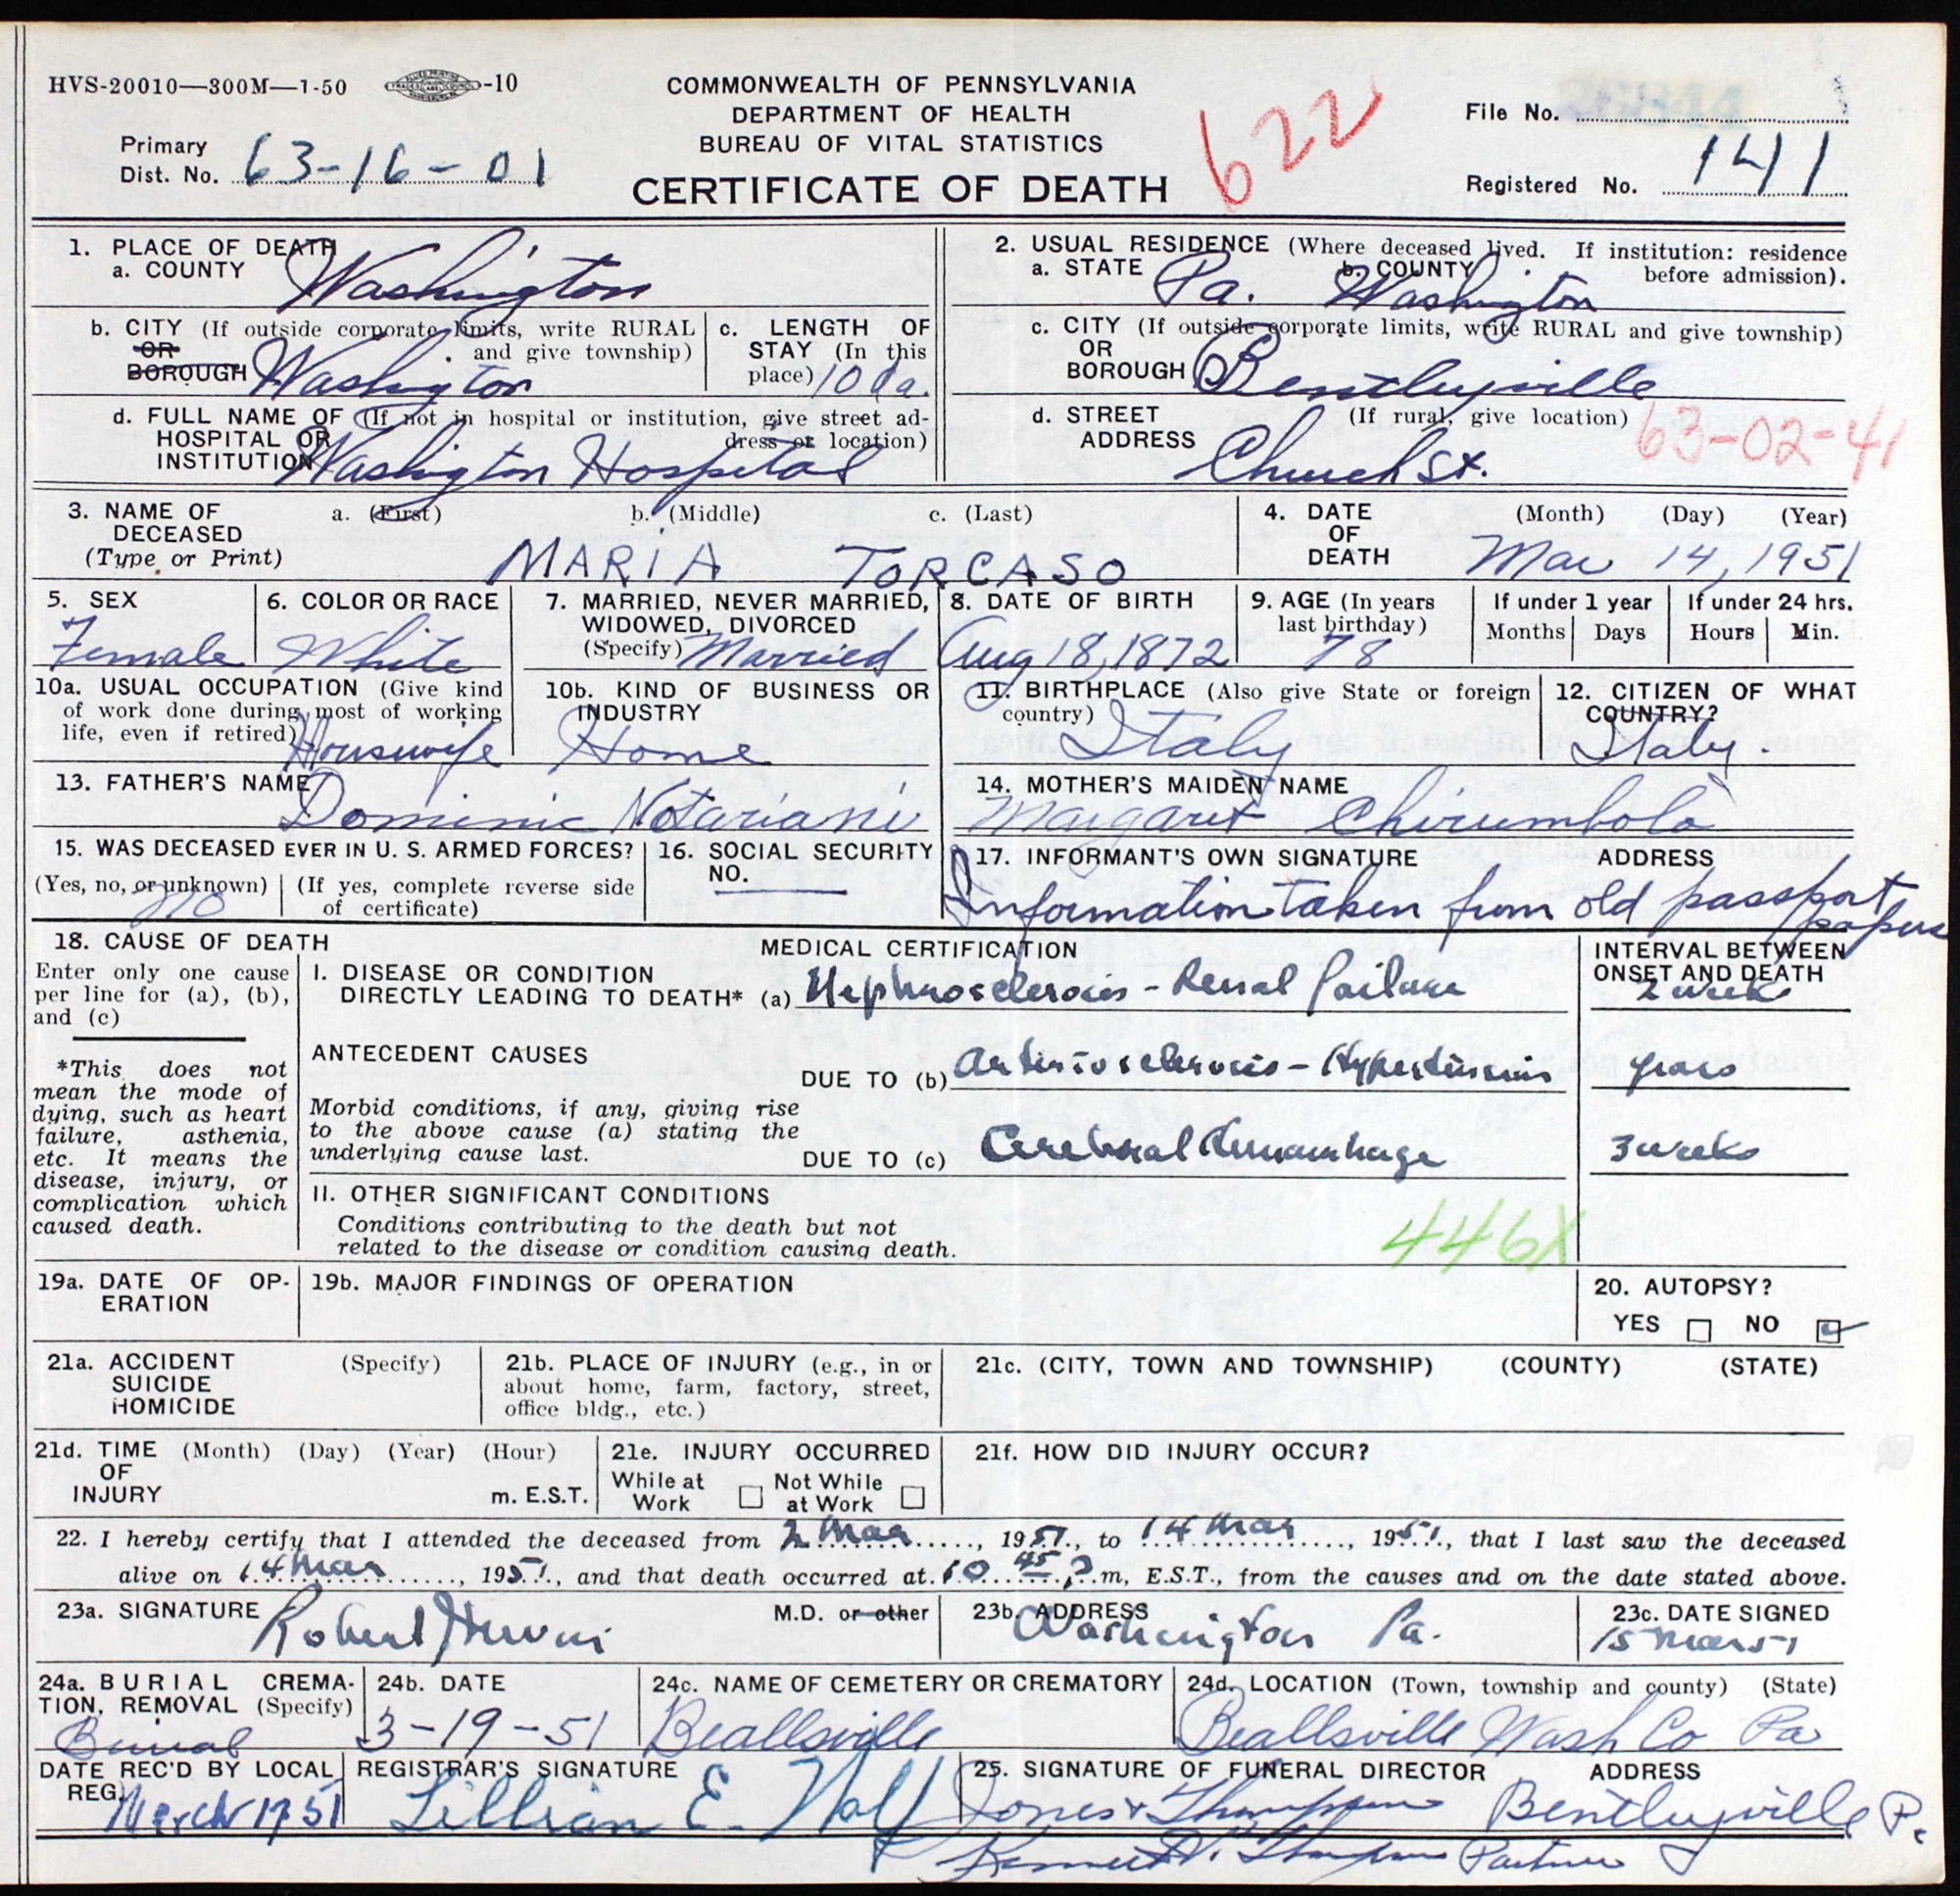 HVS-20010—300M—1-50 -10
COMMONWEALTH OF PENNSYLVANIA
DEPARTMENT OF HEALTH
BUREAU OF VITAL STATISTICS
CERTIFICATE OF DEATH
622
File No.
Primary
Dist. No. 63-16-01
Registered No. 141
1. PLACE OF DEATH
a. COUNTY Washington
2. USUAL RESIDENCE (Where deceased lived. If institution: residence
before admission).
a. STATE Pa. b. COUNTY Washington
b. CITY (If outside corporate limits, write RURAL
OR and give township)
BOROUGH Washington
c. LENGTH OF
STAY (In this
place) 10 da.
c. CITY (If outside corporate limits, write RURAL and give township)
OR
BOROUGH Bentleyville
d. FULL NAME OF (If not in hospital or institution, give street ad-
HOSPITAL OR dress or location)
INSTITUTION Washington Hospital
d. STREET (If rural, give location)
ADDRESS Church St.
63-02-41
3. NAME OF a. (First) b. (Middle) c. (Last)
DECEASED
(Type or Print) MARIA TORCASO
4. DATE (Month) (Day) (Year)
OF
DEATH Mar 14, 1951
5. SEX
Female
6. COLOR OR RACE
White
7. MARRIED, NEVER MARRIED,
WIDOWED, DIVORCED
(Specify) Married
8. DATE OF BIRTH
Aug 18, 1872
9. AGE (In years
last birthday)
78
If under 1 year
Months Days
If under 24 hrs.
Hours Min.
10a. USUAL OCCUPATION (Give kind
of work done during most of working
life, even if retired)
Housewife
10b. KIND OF BUSINESS OR
INDUSTRY
Home
11. BIRTHPLACE (Also give State or foreign
country)
Italy
12. CITIZEN OF WHAT
COUNTRY?
Italy.
13. FATHER'S NAME
Dominic Notariani
14. MOTHER'S MAIDEN NAME
Margaret Chirumbolo
15. WAS DECEASED EVER IN U. S. ARMED FORCES?
(Yes, no, or unknown) (If yes, complete reverse side
of certificate)
no
16. SOCIAL SECURITY
NO.
17. INFORMANT'S OWN SIGNATURE ADDRESS
Information taken from old passport
papers
18. CAUSE OF DEATH
Enter only one cause
per line for (a), (b),
and (c)
*This does not
mean the mode of
dying, such as heart
failure, asthenia,
etc. It means the
disease, injury, or
complication which
caused death.
MEDICAL CERTIFICATION
INTERVAL BETWEEN
ONSET AND DEATH
I. DISEASE OR CONDITION
DIRECTLY LEADING TO DEATH* (a) Nephrosclerosis - Renal failure 2 weeks
ANTECEDENT CAUSES
DUE TO (b) Arteriosclerosis - Hypertension years
Morbid conditions, if any, giving rise
to the above cause (a) stating the
underlying cause last.
DUE TO (c) Cerebral Hemorrhage 3 weeks
II. OTHER SIGNIFICANT CONDITIONS
Conditions contributing to the death but not
related to the disease or condition causing death.
446X
19a. DATE OF OP-
ERATION
19b. MAJOR FINDINGS OF OPERATION
20. AUTOPSY?
YES NO
21a. ACCIDENT (Specify)
SUICIDE
HOMICIDE
21b. PLACE OF INJURY (e.g., in or
about home, farm, factory, street,
office bldg., etc.)
21c. (CITY, TOWN AND TOWNSHIP) (COUNTY) (STATE)
21d. TIME (Month) (Day) (Year) (Hour)
OF
INJURY m. E.S.T.
21e. INJURY OCCURRED
While at Not While
Work at Work
21f. HOW DID INJURY OCCUR?
22. I hereby certify that I attended the deceased from 2 Mar, 1951, to 14 Mar, 1951, that I last saw the deceased
alive on 14 Mar, 1951, and that death occurred at 10 45 P m, E.S.T., from the causes and on the date stated above.
23a. SIGNATURE M.D. or other
Robert
23b. ADDRESS
Washington Pa.
23c. DATE SIGNED
15 Mar 51
24a. BURIAL CREMA-
TION, REMOVAL (Specify)
Burial
24b. DATE
3-19-51
24c. NAME OF CEMETERY OR CREMATORY
Beallsville
24d. LOCATION (Town, township and county) (State)
Beallsville Wash Co Pa
DATE REC'D BY LOCAL
REG.
March 17 51
REGISTRAR'S SIGNATURE
Lillian E. Wolf
25. SIGNATURE OF FUNERAL DIRECTOR ADDRESS
Jones & Thompson Bentleyville Pa.
Kenneth Thompson Partner